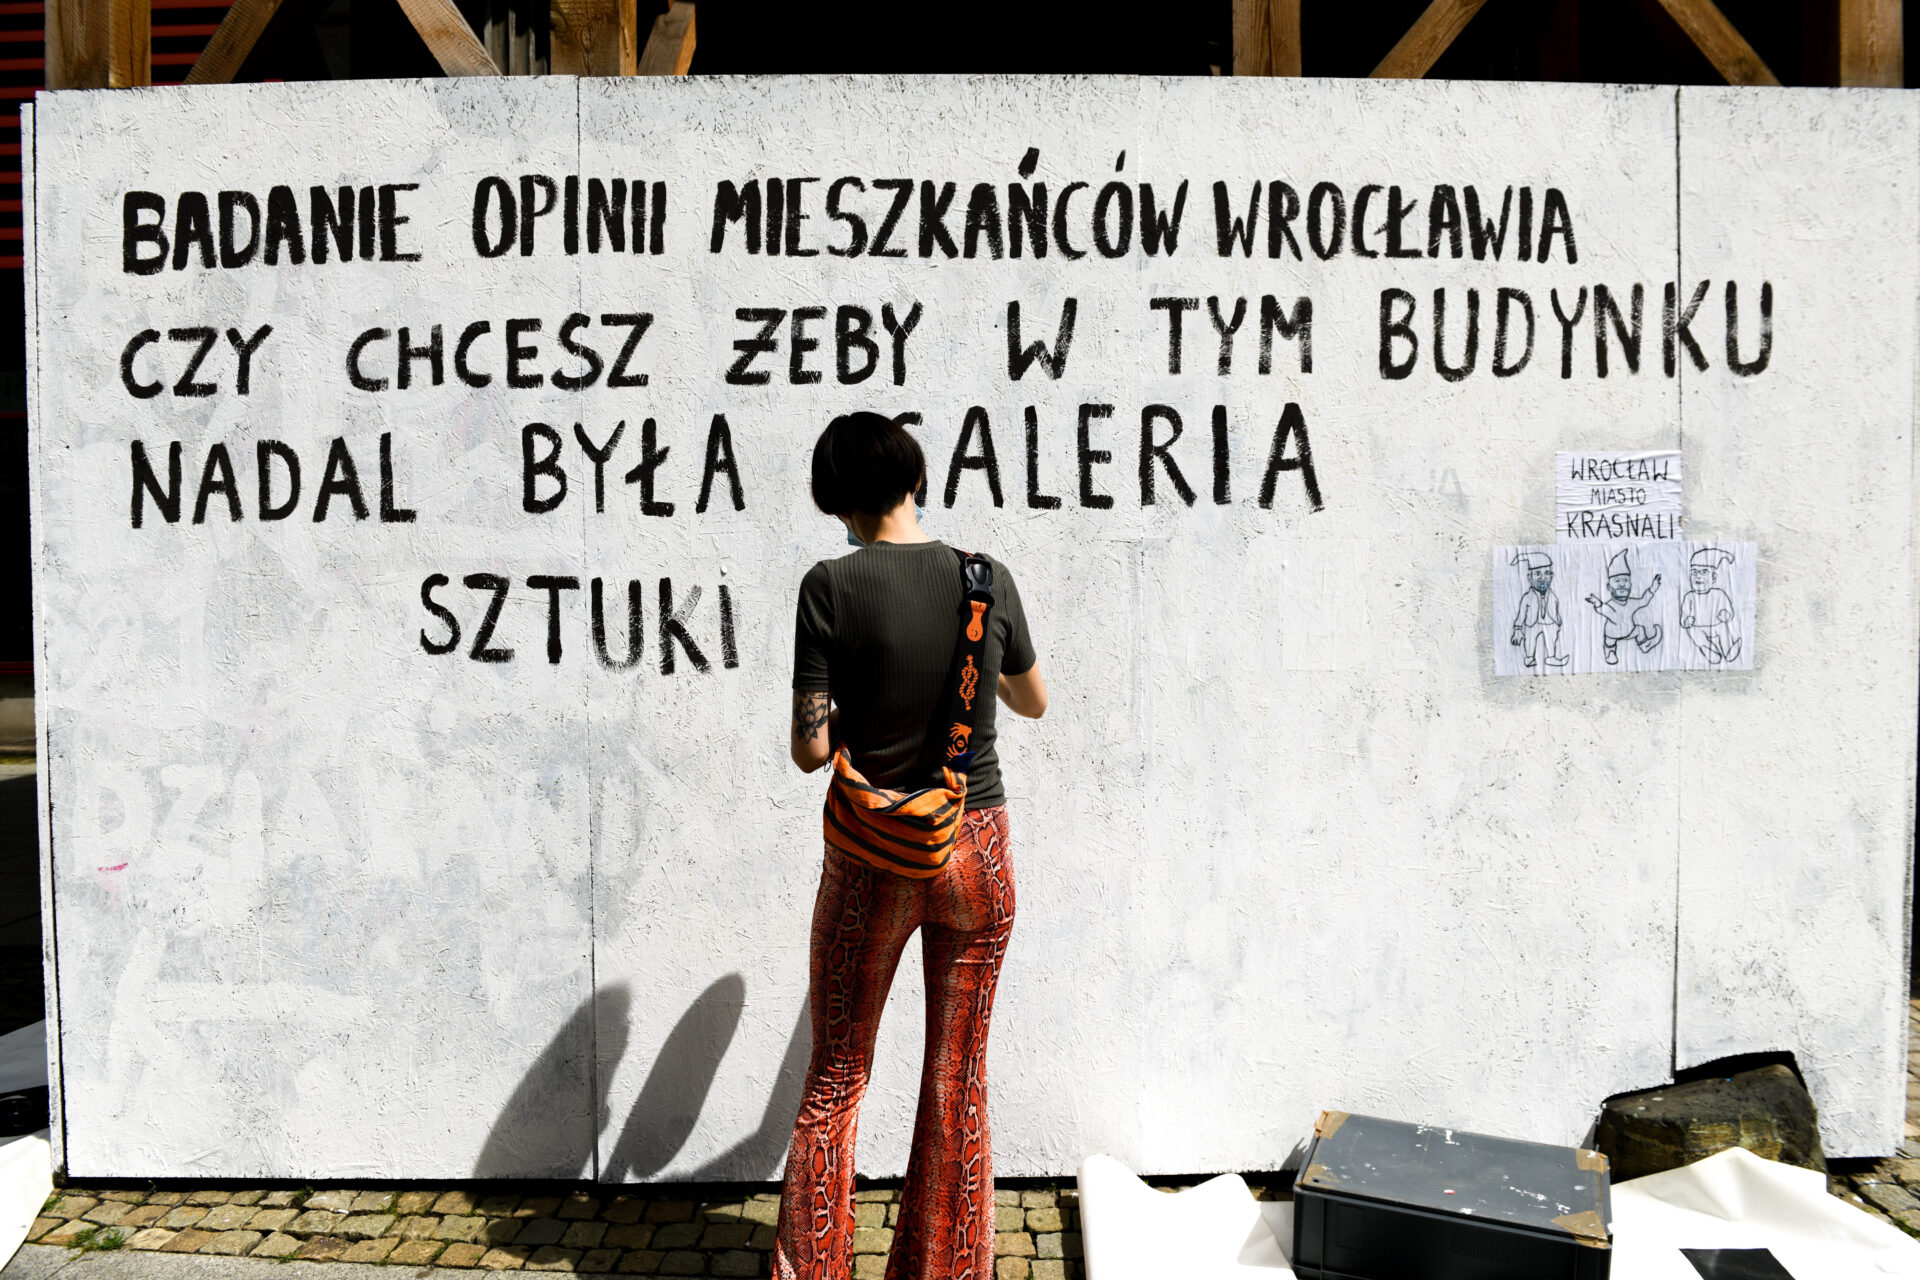 BADANIE OPINII MIESZKAŃCÓW WROCŁAWIA
CZY CHCESZ ŻEBY W TYM BUDYNKU
NADAL BYŁA GALERIA
SZTUKI
WROCŁAW
MIASTO
KRASNALI